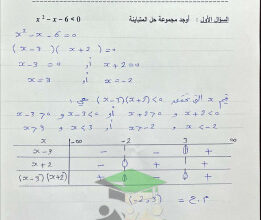 السؤال الأول : أوجد مجموعة حل المتباينة x² - x - 6 < 0
x² - x - 6 = 0
(x - 3)(x + 2) = 0
x - 3 = 0 أو x + 2 = 0
x = 3 أو x = -2
قيم x التي تحقق (x-3)(x+2) < 0 هي :
x - 3 > 0 و x + 2 < 0 أو x - 3 < 0 و x + 2 > 0
x > 3 و x < -2 أو x < 3 و x > -2
x -∞ -2 3 ∞
x - 3 - - 0 +
x + 2 - 0 + +
(x-3)(x+2) + 0 - 0 +
م . ح = (-2, 3)